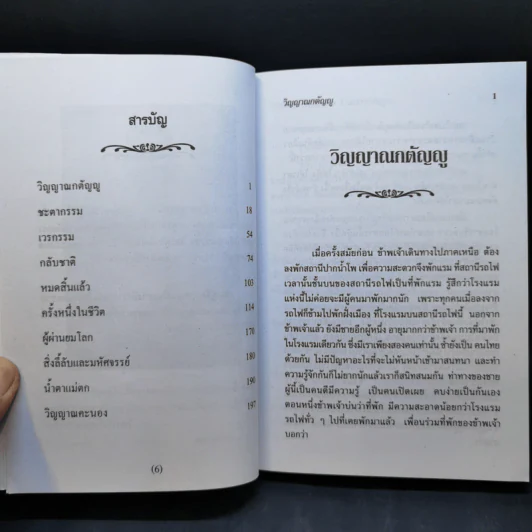 สารบัญ
วิญญาณกตัญญู 1
ชะตากรรม 18
เวรกรรม 54
กลับชาติ 74
หมดสิ้นแล้ว 103
ครั้งหนึ่งในชีวิต 134
ผู้ผ่านยมโลก 170
สิ่งลี้ลับและมหัศจรรย์ 180
น้ำตาแม่ตก 190
วิญญาณคะนอง 197
(6)
วิญญาณกตัญญู 1
วิญญาณกตัญญู
เมื่อครั้งสมัยก่อน ข้าพเจ้าเดินทางไปภาคเหนือ ต้อง
ลงพักสถานีปากน้ำโพ เพื่อความสะดวกจึงพักแรม ที่สถานีรถไฟ
เวลานั้นชั้นบนของสถานีรถไฟเป็นที่พักแรม รู้สึกว่าโรงแรม
แห่งนี้ไม่ค่อยจะมีผู้คนมาพักมากนัก เพราะทุกคนเมื่อลงจาก
รถไฟก็ข้ามไปพักฝั่งเมือง ที่โรงแรมบนสถานีรถไฟนี้ นอกจาก
ข้าพเจ้าแล้ว ยังมีชายอีกผู้หนึ่ง อายุมากกว่าข้าพเจ้า การที่มาพัก
ในโรงแรมเดียวกัน ซึ่งมีเราเพียงสองคนเท่านั้น ซ้ำยังเป็น คนไทย
ด้วยกัน ไม่มีปัญหาอะไรที่จะไม่หันหน้าเข้ามาสนทนา และทำ
ความรู้จักกันก็ไม่ยากนักแล้วเราก็สนิทสนมกัน ท่าทางของชาย
ผู้นี้เป็นคนดีมีความรู้ เป็นคนเปิดเผย คบง่ายเป็นกันเอง
ตอนหนึ่งข้าพเจ้าบ่นว่าที่พัก มีความสะอาดน้อยกว่าโรงแรม
รถไฟทั่ว ๆ ไปที่เคยพักมาแล้ว เพื่อนร่วมที่พักของข้าพเจ้า
บอกว่า